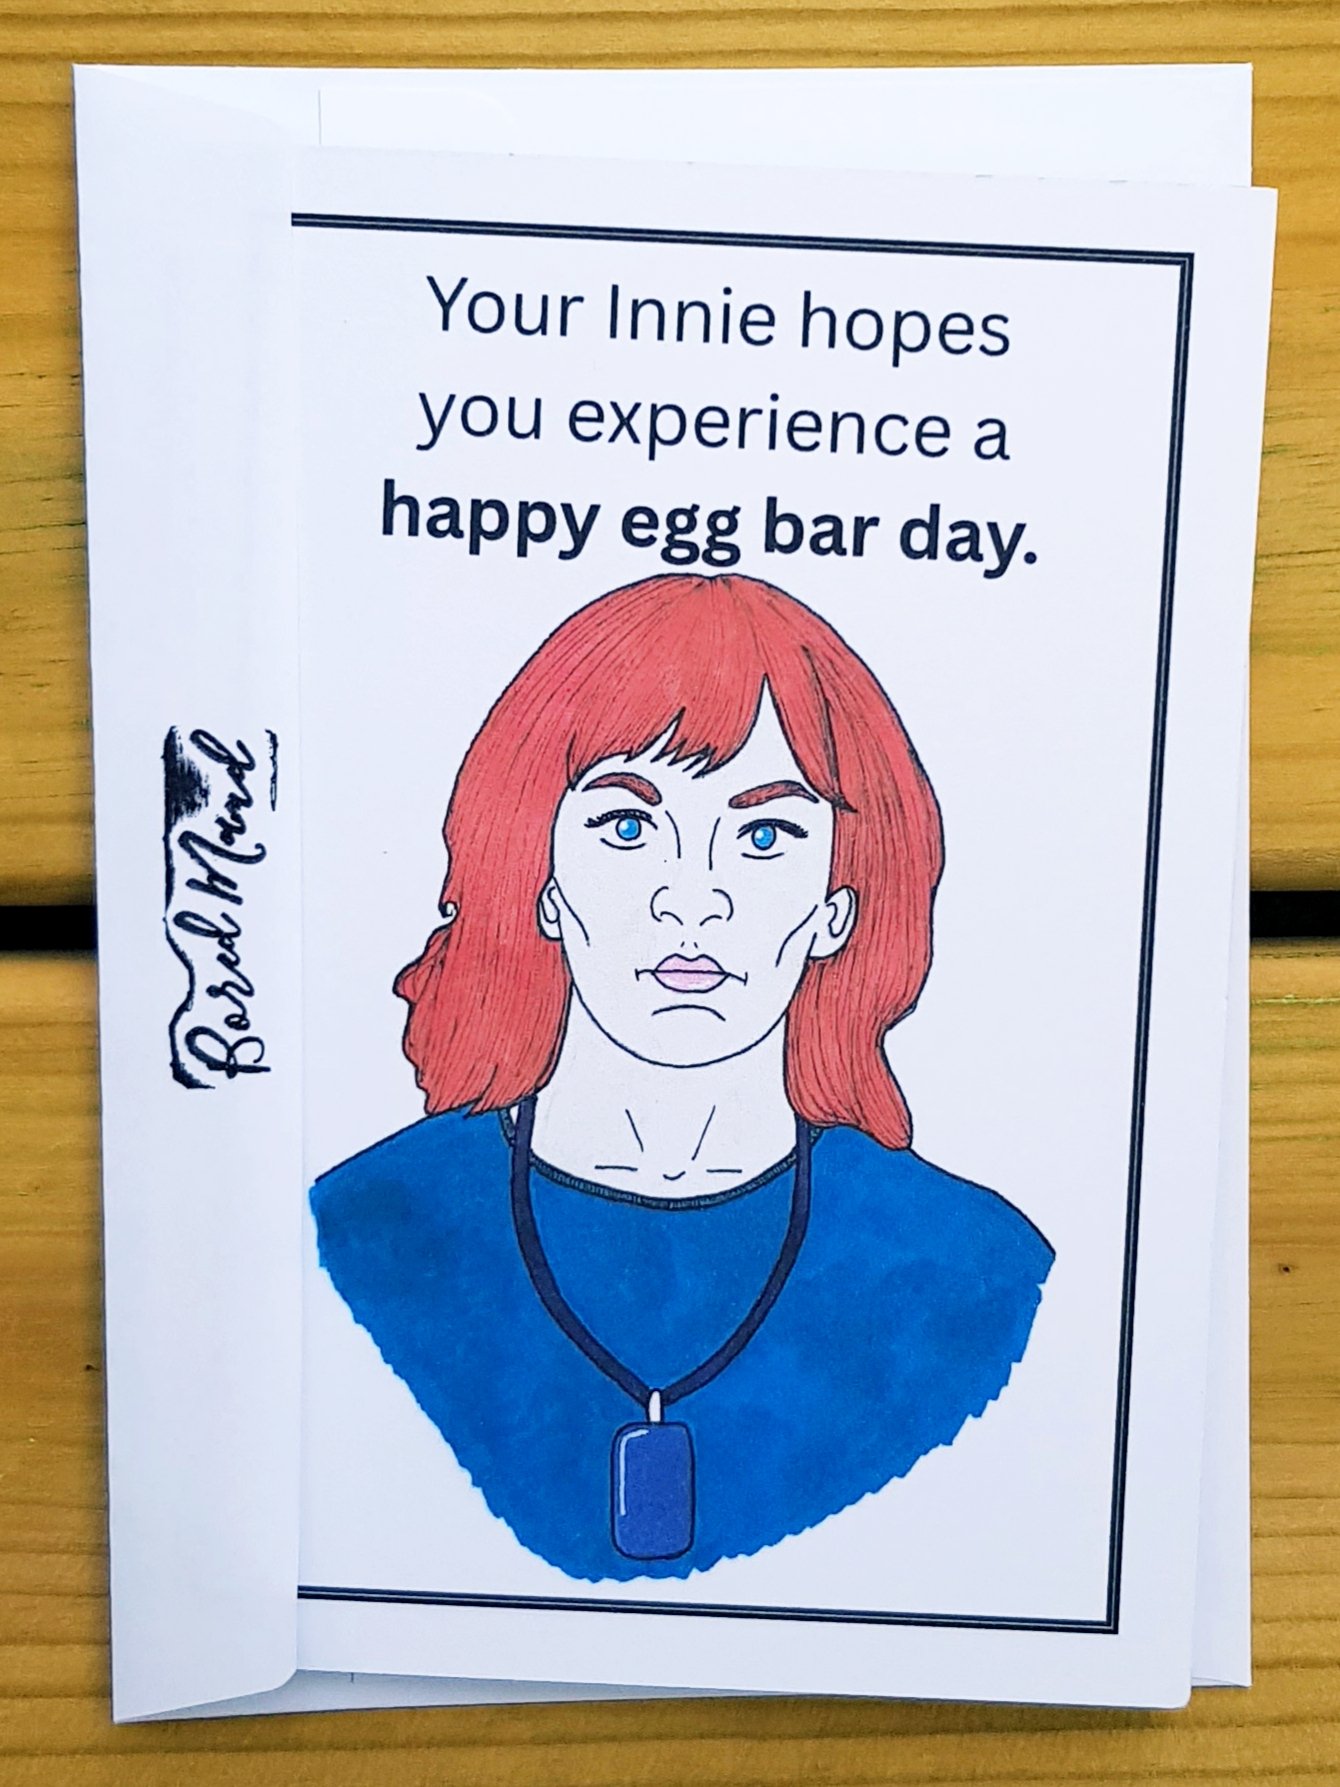 Your Innie hopes
you experience a
happy egg bar day.
Bored Mand